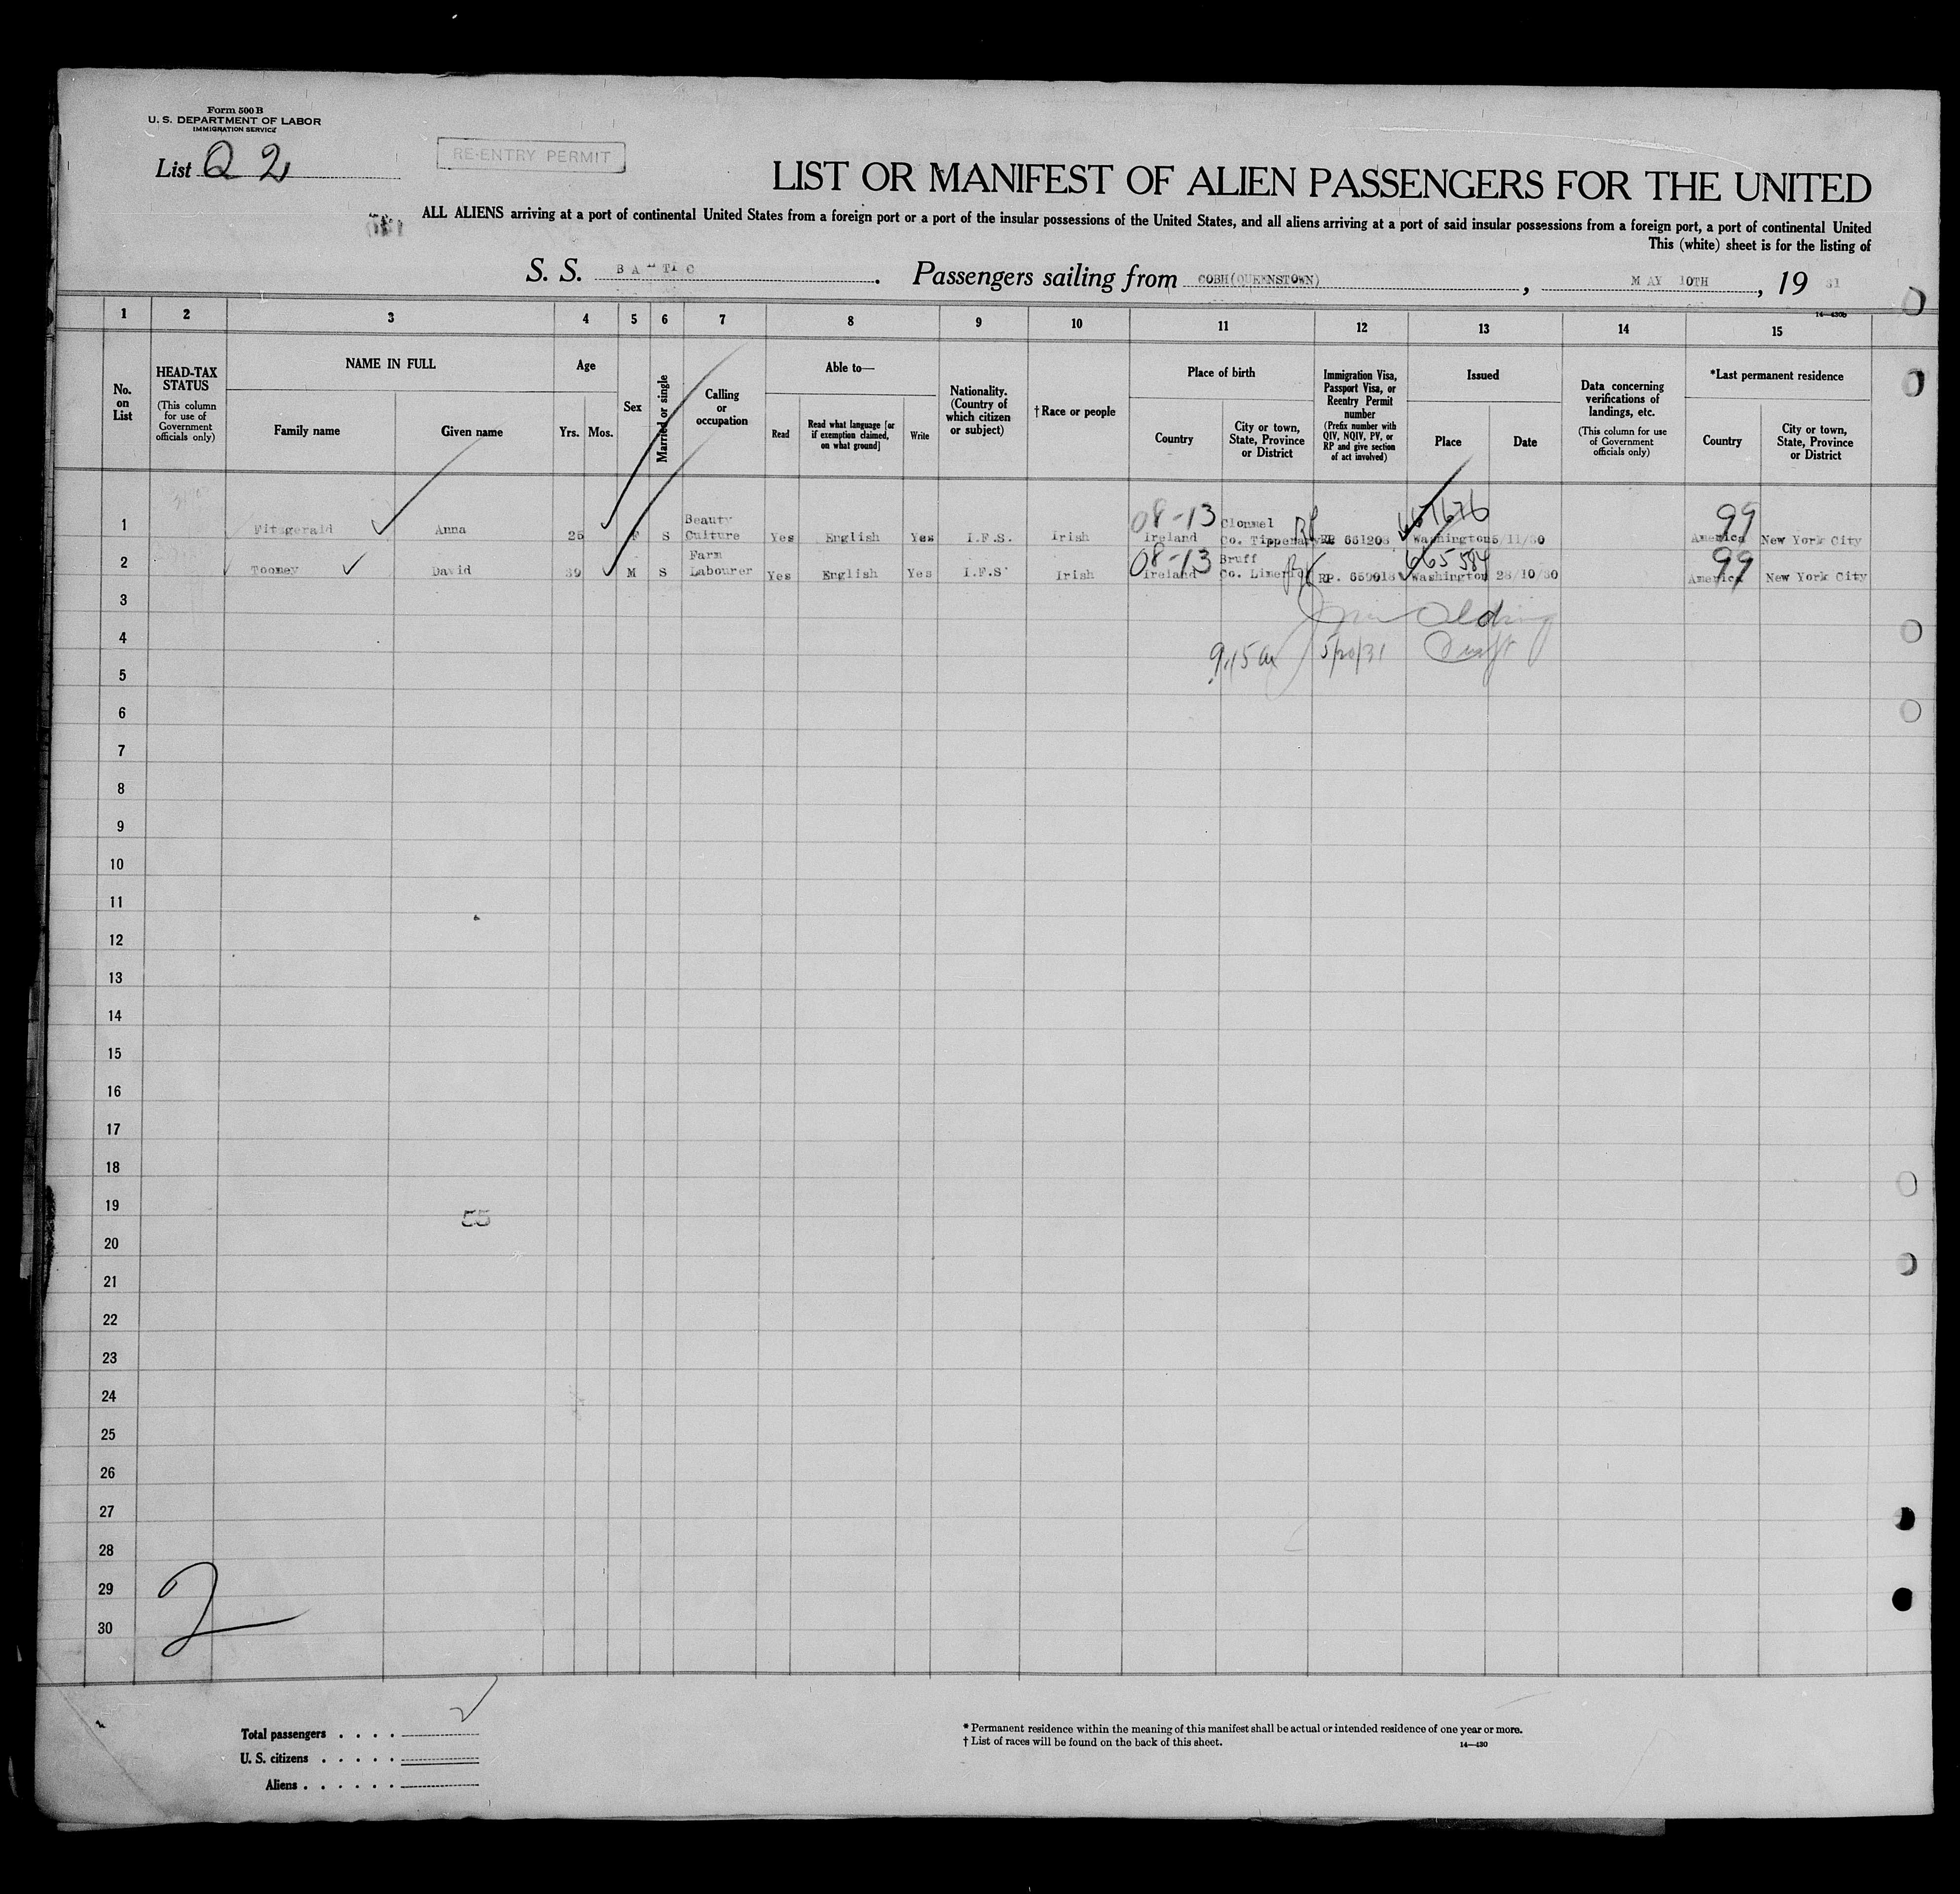 Form 500 B
U. S. DEPARTMENT OF LABOR
IMMIGRATION SERVICE
List Q 2
RE-ENTRY PERMIT
LIST OR MANIFEST OF ALIEN PASSENGERS FOR THE UNITED
ALL ALIENS arriving at a port of continental United States from a foreign port or a port of the insular possessions of the United States, and all aliens arriving at a port of said insular possessions from a foreign port, a port of continental United
This (white) sheet is for the listing of
S. S. BALTIC. Passengers sailing from COBH(QUEENSTOWN), MAY 10TH, 19 31
14—430b
1 2 3 4 5 6 7 8 9 10 11 12 13 14 15
No. on List
HEAD-TAX STATUS
(This column for use of Government officials only)
NAME IN FULL
Family name
Given name
Age
Yrs. Mos.
Sex
Married or single
Calling or occupation
Able to—
Read
Read what language [or if exemption claimed, on what ground]
Write
Nationality. (Country of which citizen or subject)
† Race or people
Place of birth
Country
City or town, State, Province or District
Immigration Visa, Passport Visa, or Reentry Permit number
(Prefix number with QIV, NQIV, PV, or RP and give section of act involved)
Issued
Place
Date
Data concerning verifications of landings, etc.
(This column for use of Government officials only)
*Last permanent residence
Country
City or town, State, Province or District
08-13 99
1 Fitzgerald Anna 25 F S Beauty Culture Yes English Yes I.F.S. Irish Ireland Clonmel Co. Tipperary RP 661208 Washington 5/11/30 America New York City
08-13 665584 99
2 Toomey David 39 M S Farm Labourer Yes English Yes I.F.S. Irish Ireland Bruff Co. Limerick RP. 659018 Washington 28/10/30 America New York City
3
4
9.15 am 5/20/31
5
6
7
8
9
10
11
12
13
14
15
16
17
18
19
55
20
21
22
23
24
25
26
27
28
29
30
2
Total passengers . . . . 2
U. S. citizens . . . . .
Aliens . . . . . .
* Permanent residence within the meaning of this manifest shall be actual or intended residence of one year or more.
† List of races will be found on the back of this sheet.
14—430